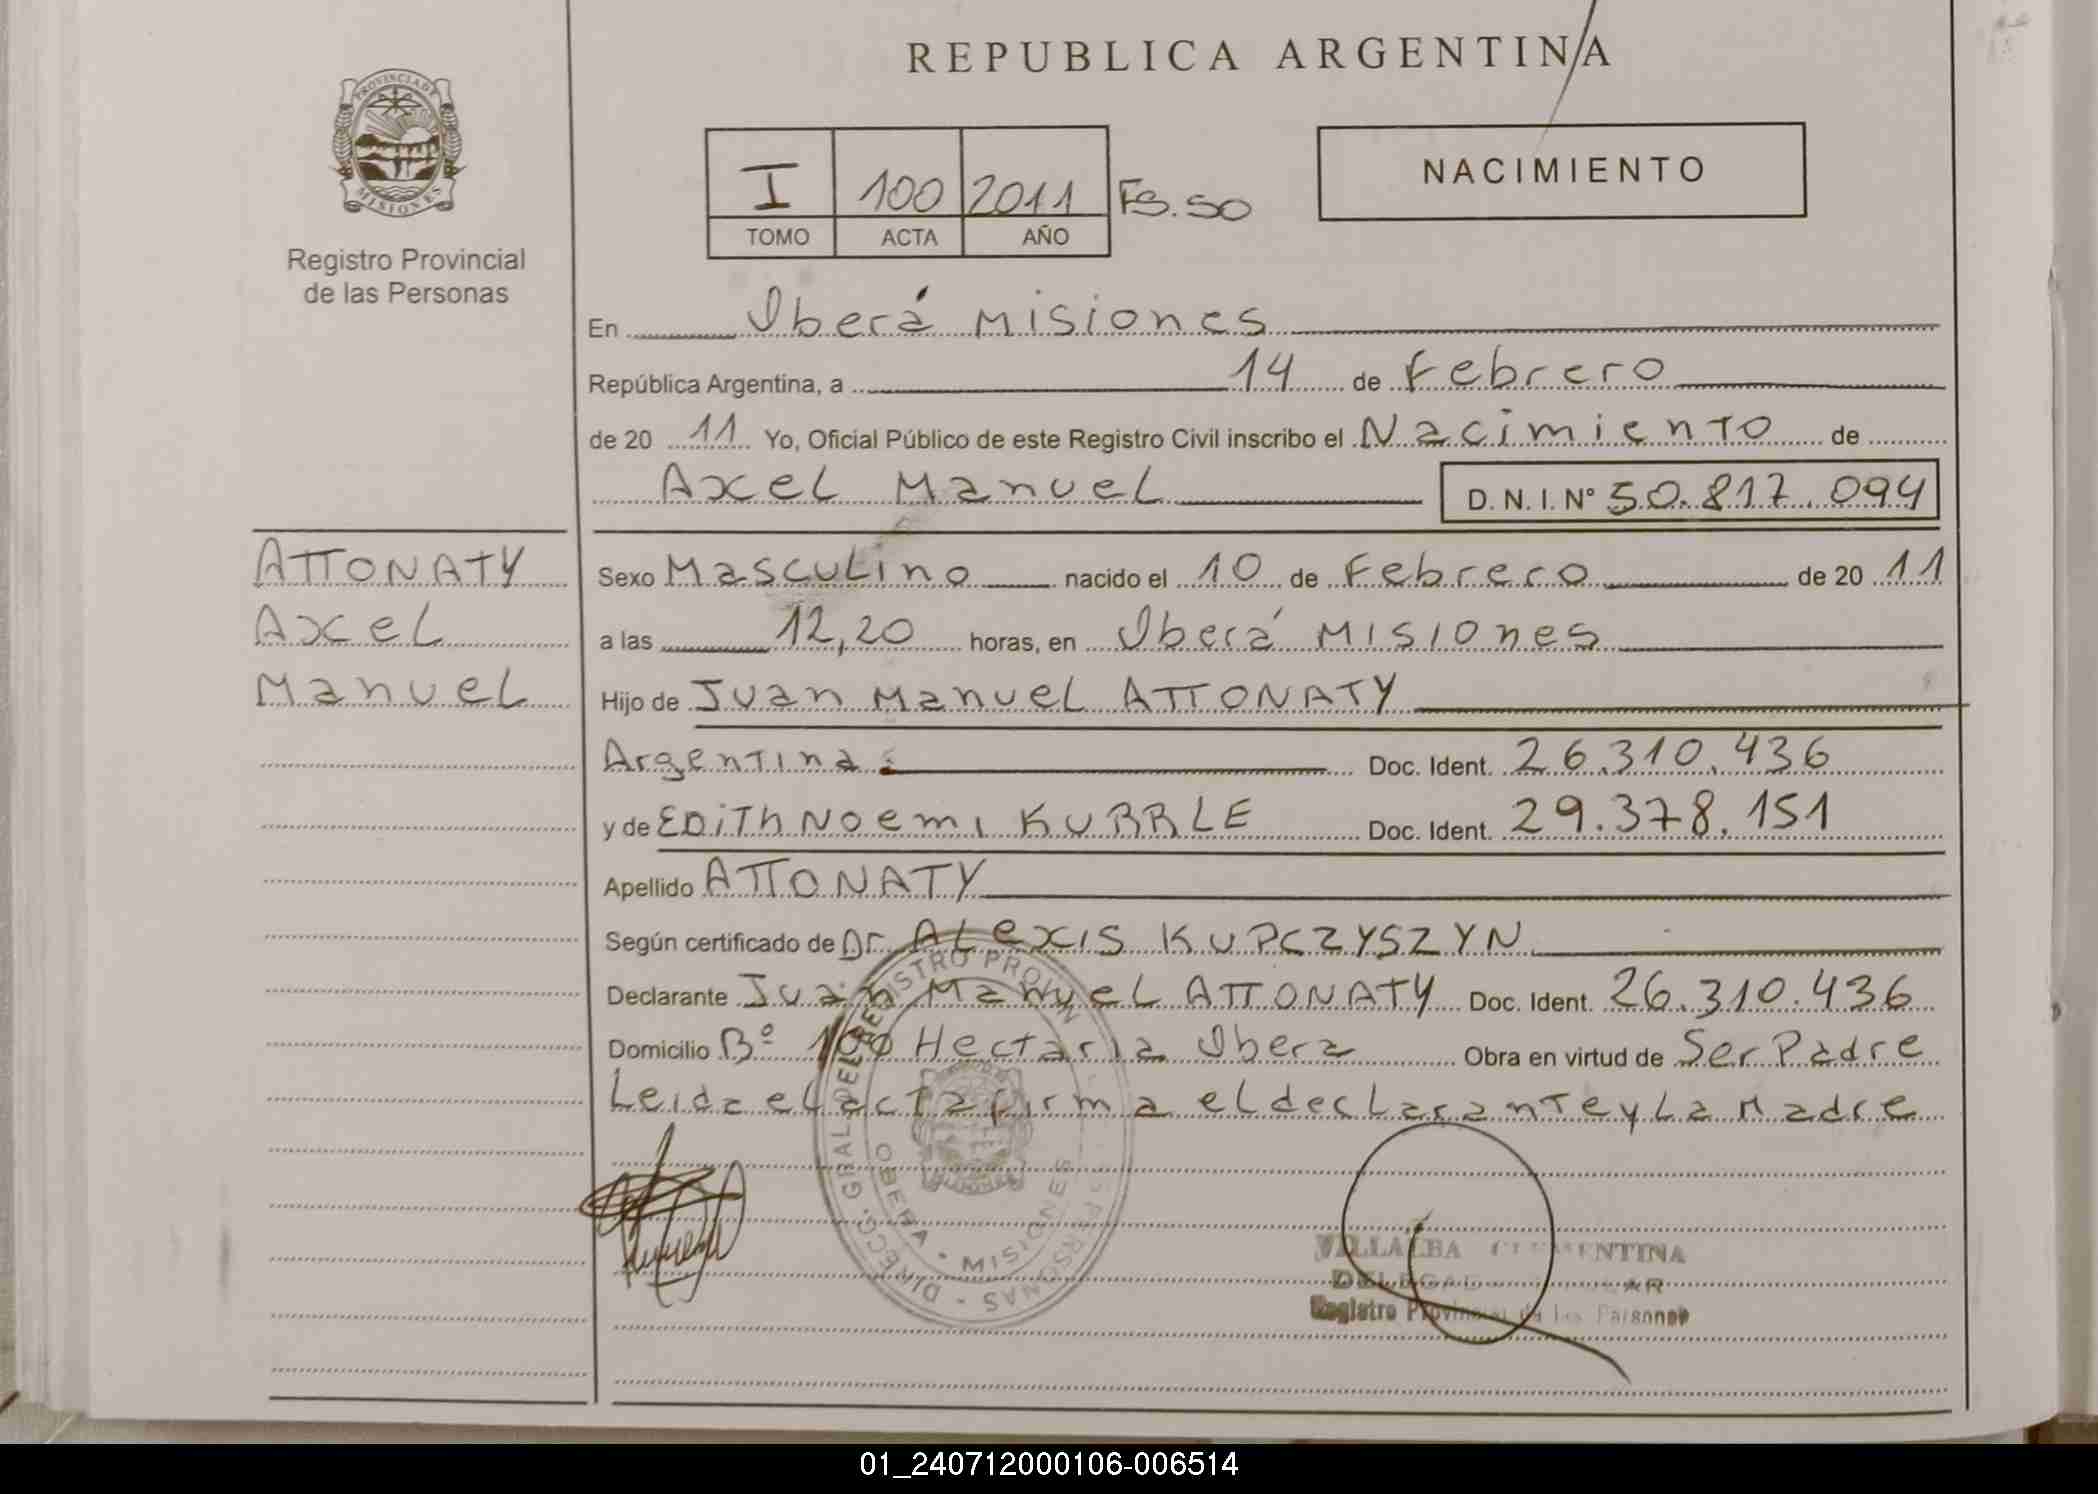 REPUBLICA ARGENTINA
PROVINCIA DE
MISIONES
Registro Provincial
de las Personas
I 100 2011 FS.50
TOMO ACTA AÑO
NACIMIENTO
En Oberá Misiones
República Argentina, a 14 de Febrero
de 20 11 Yo, Oficial Público de este Registro Civil inscribo el Nacimiento de
Axel Manuel D. N. I. N° 50.817.094
ATTONATY
Axel
Manuel
Sexo Masculino nacido el 10 de Febrero de 20 11
a las 12,20 horas, en Oberá Misiones
Hijo de Juan Manuel ATTONATY
Argentina Doc. Ident. 26.310.436
y de EDith Noemi KUBBLE Doc. Ident. 29.378.151
Apellido ATTONATY
Según certificado de Dr. ALexis KUPCZYSZYN
Declarante Juan Manuel ATTONATY Doc. Ident. 26.310.436
Domicilio B° 100 Hectaria Obera Obra en virtud de Ser Padre
Leida el acta firma el declarante y La Madre
DIRECC. GRAL. DEL REGISTRO PROVIN PERSONAS
OBERA - MISIONES
VILLALBA CLEMENTINA
Registro Provincial de las Personas
01_240712000106-006514